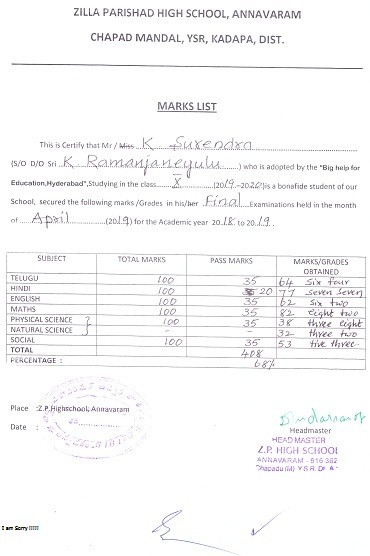 ZILLA PARISHAD HIGH SCHOOL, ANNAVARAM
CHAPAD MANDAL, YSR, KADAPA, DIST.
MARKS LIST
This is Certify that Mr / Miss K Surendra
(S/O D/O Sri K Ramanjaneyulu ) who is adopted by the "Big help for
Education, Hyderabad", Studying in the class X (2019-2020) is a bonafide student of our
School, secured the following marks /Grades in his/her Final Examinations held in the month
of April (2019) for the Academic year 2018 to 2019.
SUBJECT TOTAL MARKS PASS MARKS MARKS/GRADES OBTAINED
TELUGU 100 35 64 six four
HINDI 100 20 77 seven seven
ENGLISH 100 35 62 six two
MATHS 100 35 82 eight two
PHYSICAL SCIENCE } 100 35 38 three eight
NATURAL SCIENCE - - 32 three two
SOCIAL 100 35 53 five three
TOTAL 408
PERCENTAGE : 68%
Place :Z.P.Highschool, Annavaram
Date : 20
Headmaster
HEAD MASTER
Z.P. HIGH SCHOOL
ANNAVARAM - 516 362
Chapadu (M) Y.S.R. Dt
I am Sorry !!!!!